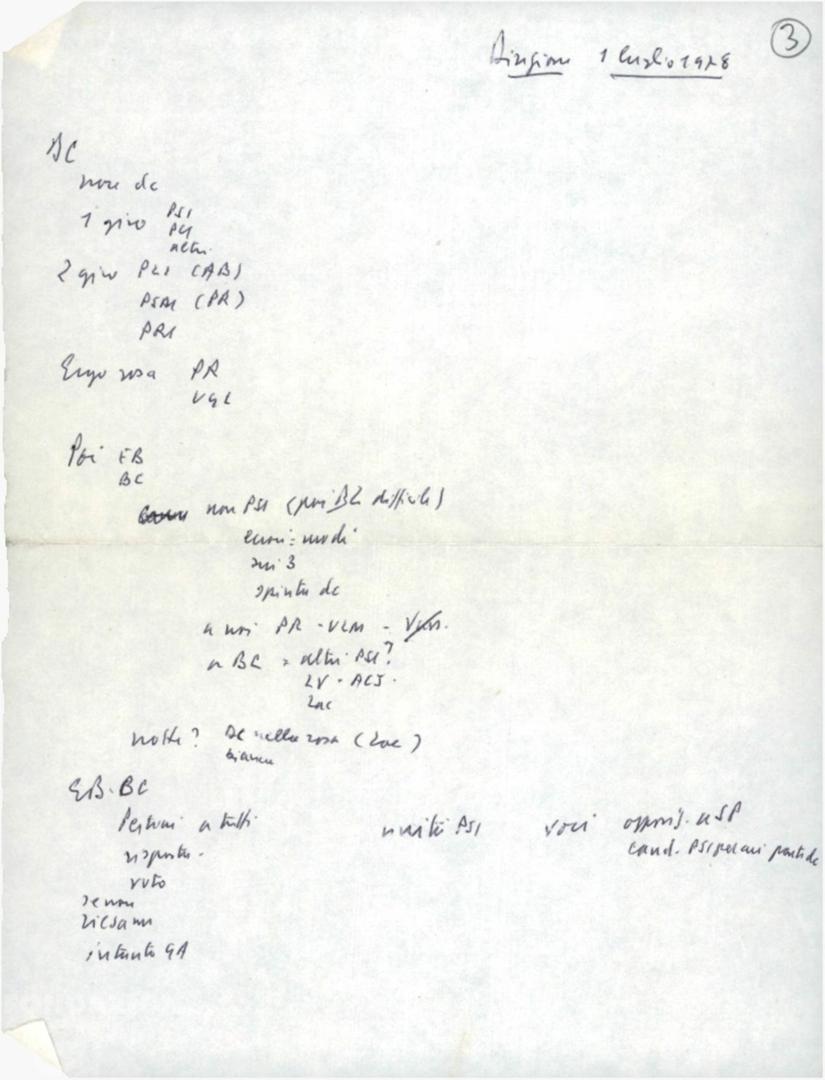 3
Direzione 1 luglio 1978
BC
non dc
1 giro PSI
PCI
altri
2 giro PLI (AB)
PSDI (PR)
PRI
Ergo rosa PR
VGL
Poi EB
BC
non PSI (poi BC difficile)
errori = modi
sui 3
spinta dc
a noi PR - VLM -
a BC = altri PSI?
LV - ACJ.
Zac
notte? DC nella rosa (Zac)
bianca
EB-BC
Pertini a tutti
risposta -
voto
unità PSI voci apposit. a SP
cand. PSI per lui parti dc
se non
riesame
intanto GA